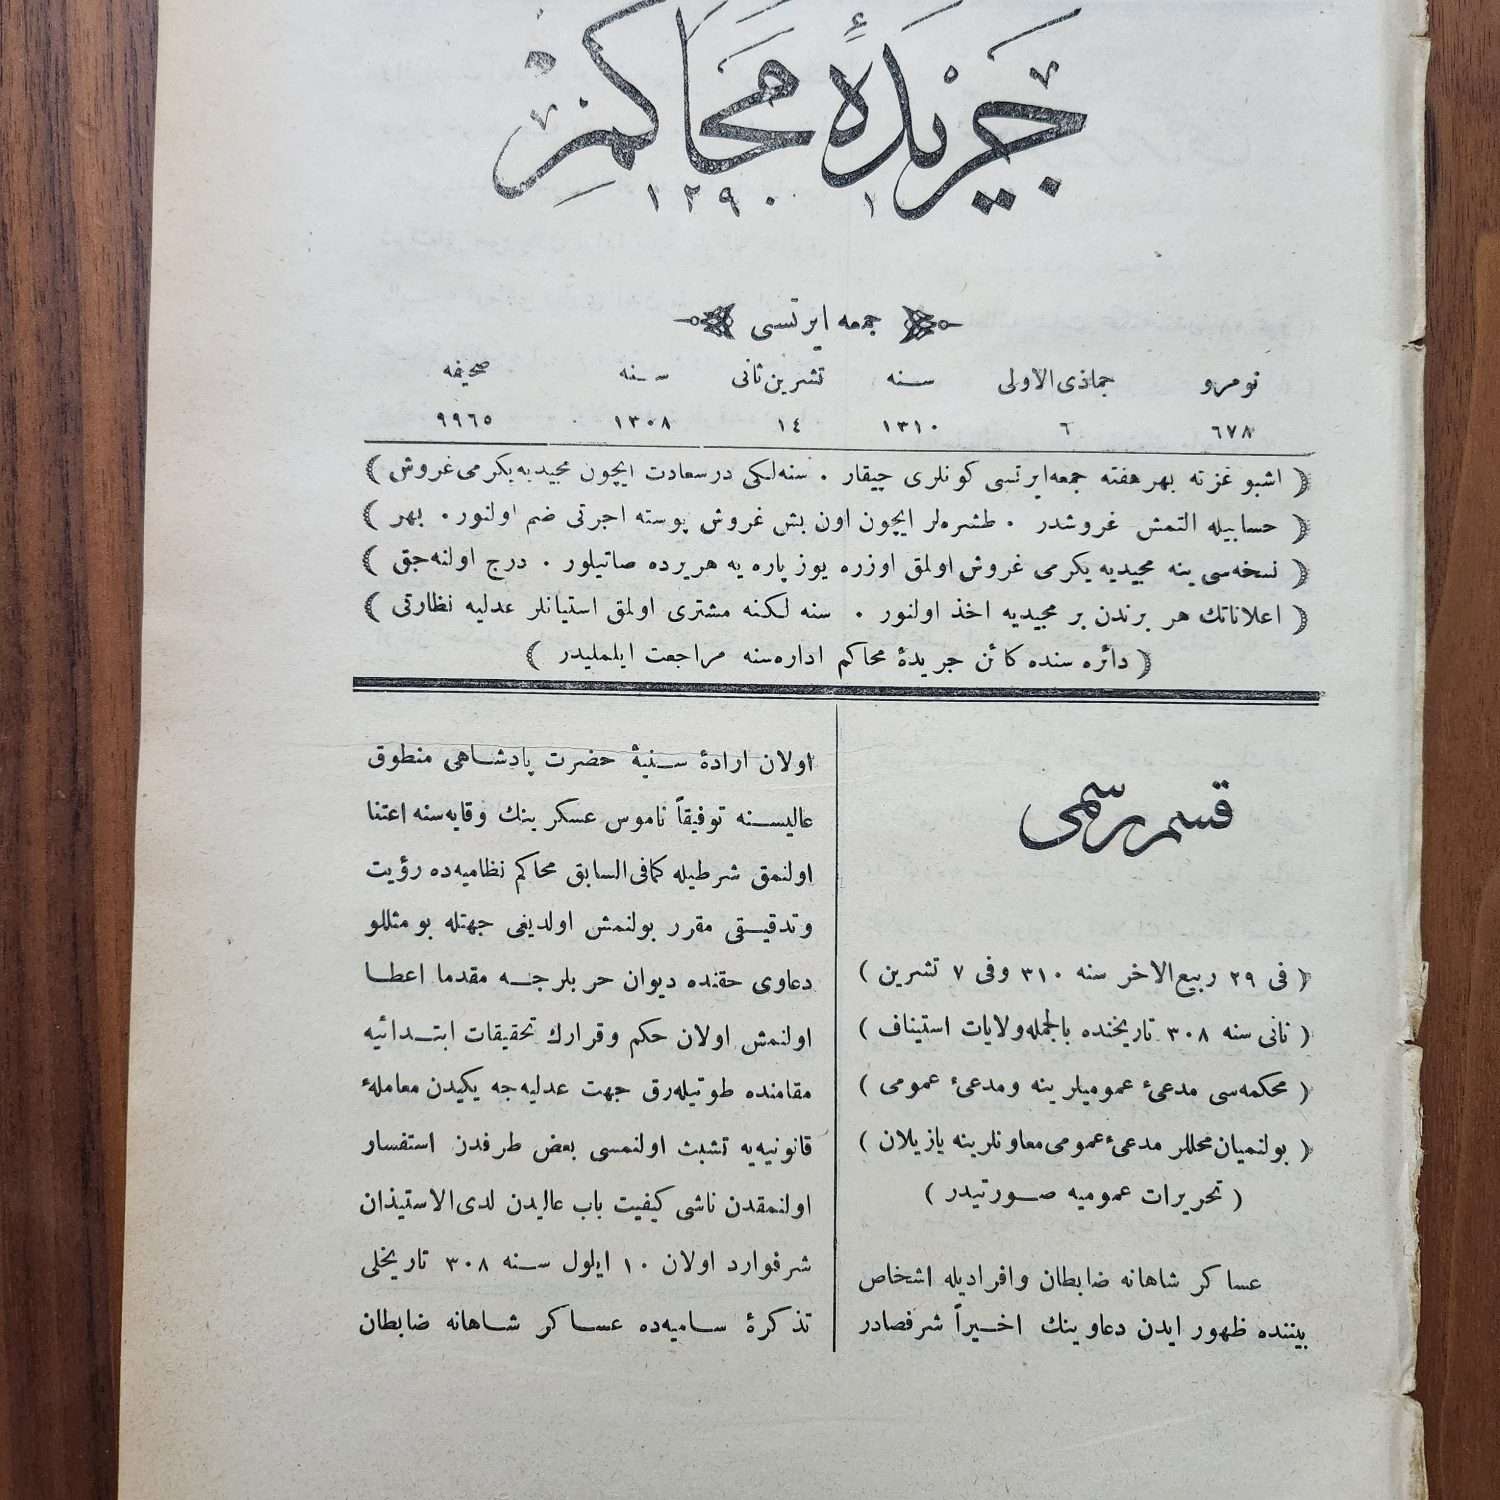 جریدهٔ محاكم
١٢٩٠
جمعه ايرتسى
نومرو جماذى الاولى سنه تشرين ثانى سنه صحيفه
٦٧٨ ٦ ١٣١٠ ١٤ ١٣٠٨ ٩٩٦٥
( اشبو غزته بهر هفته جمعه ايرتسى كونلرى چيقار . سنه لكى درسعادت ايچون مجيديه يكرمى غروش )
( حسابيله التمش غروشدر . طشره لر ايچون اون بش غروش پوسته اجرتى ضم اولنور . بهر )
( نسخه سى ينه مجيديه يكرمى غروش اولمق اوزره يوز پاره يه هر يرده صاتيلور . درج اولنه جق )
( اعلاناتك هر برندن بر مجيديه اخذ اولنور . سنه لكنه مشترى اولمق استيانلر عدليه نظارتى )
( دائره سنده كائن جريدهٔ محاكم اداره سنه مراجعت ايلمليدر )
قسم رسمى
( فى ٢٩ ربيع الاخر سنه ٣١٠ وفى ٧ تشرين )
( ثانى سنه ٣٠٨ تاريخنده بالجمله ولايات استيناف )
( محكمه سى مدعئ عموميلرينه ومدعئ عمومى )
( بولنميان محللر مدعئ عمومى معاونلرينه يازيلان )
( تحريرات عموميه صورتيدر )
عساكر شاهانه ضابطان وافراديله اشخاص
بيننده ظهور ايدن دعاوينك اخيراً شرفصادر
اولان ارادهٔ سنيهٔ حضرت پادشاهى منطوق
عاليسنه توفيقاً ناموس عسكرينك وقايه سنه اعتنا
اولنمق شرطيله كمافى السابق محاكم نظاميه ده رؤيت
وتدقيقى مقرر بولنمش اولديغى جهتله بو مثللو
دعاوى حقنده ديوان حربلرجه مقدما اعطا
اولنمش اولان حكم وقرارك تحقيقات ابتدائيه
مقامنده طوتيله رق جهت عدليه جه يكيدن معاملهٔ
قانونيه يه تشبث اولنمسى بعض طرفدن استفسار
اولنمقدن ناشى كيفيت باب عاليدن لدى الاستيذان
شرفوارد اولان ١٠ ايلول سنه ٣٠٨ تاريخلى
تذكرهٔ ساميه ده عساكر شاهانه ضابطان